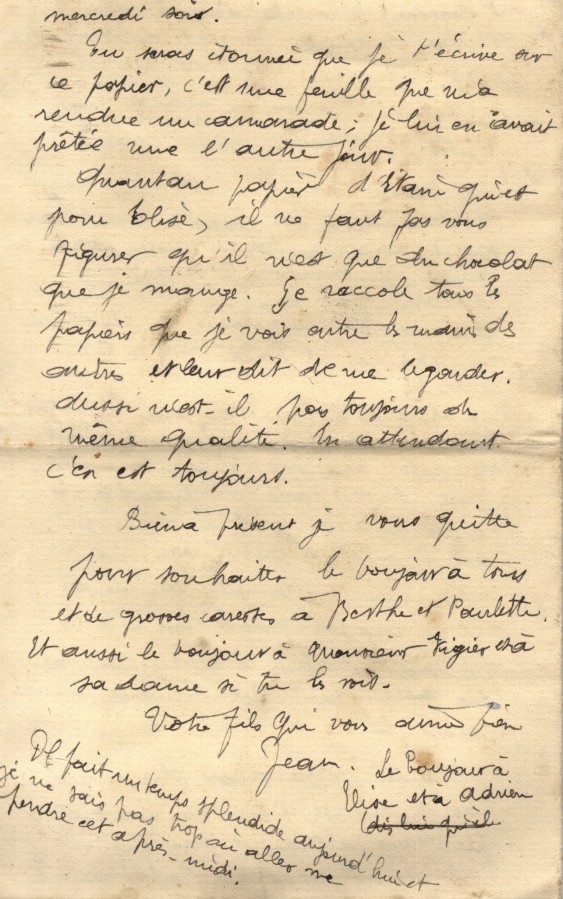 mercredi soir.
Tu seras étonnée que je t'écrive sur
ce papier, c'est une feuille que m'a
rendue un camarade; je lui en avait
prêtée une l'autre jour.
Quantau papier d'Etain qui est
pour Elise, il ne faut pas vous
figurer qu'il n'est que du chocolat
que je mange. Je raccole tous les
papiers que je vois entre les mains des
autres et leur dit de me le garder.
Aussi n'est-il pas toujours de
même qualité. En attendant
c'en est toujours.
Bien à présent je vous quitte
pour souhaiter le boujour à tous
et de grosses caresses à Berthe et Paulette.
Et aussi le boujour à Monsieur Vigier et à
sa dame si tu les vois.
Votre fils qui vous aime bien
Jean. Le boujour à
Elise et à Adrien
dis lui qu'il
Il fait un temps splendide aujourd'hui et
je ne sais pas trop où aller me
pendre cet après-midi.